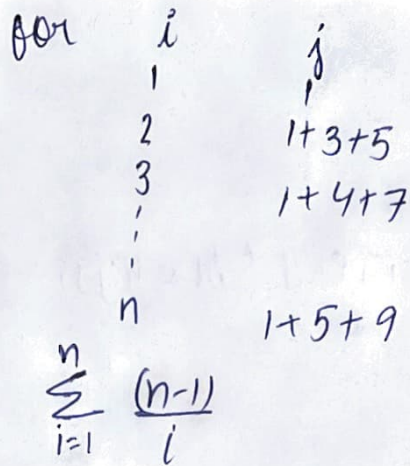 for i j
1 1
2 1+3+5
3 1+4+7
n 1+5+9
n
∑ (n-1)/i
i=1